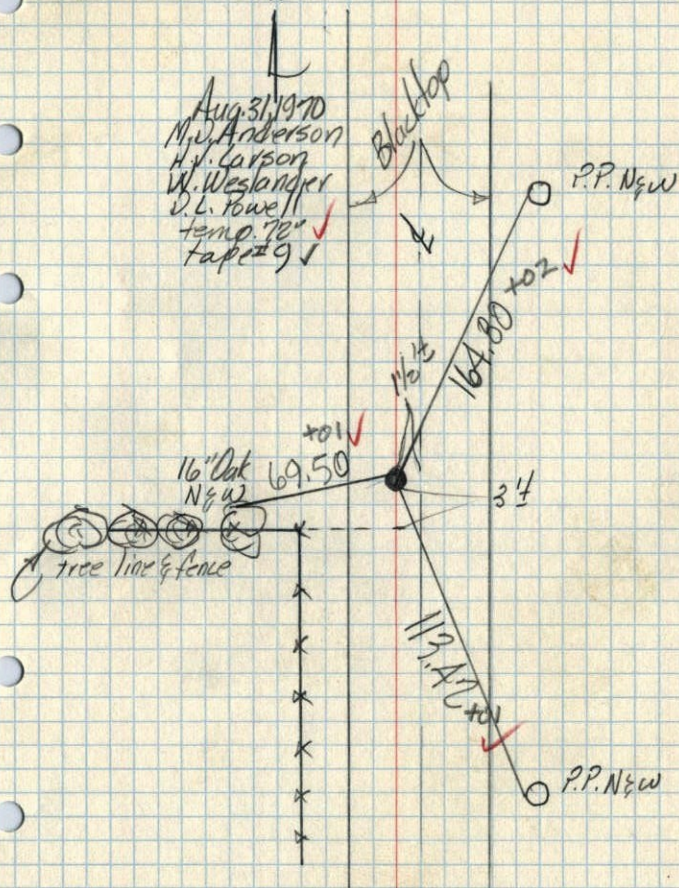 Aug. 31, 1970
M.D. Anderson
H.V. Carson
W. Weslander
D.L. Powell
temp. 72°
tape #9
Blacktop
P.P. N&W
164.80 +02
1½'±
+01
69.50
16" Oak
N&W
3'±
tree line & fence
113.42 +01
P.P. N&W